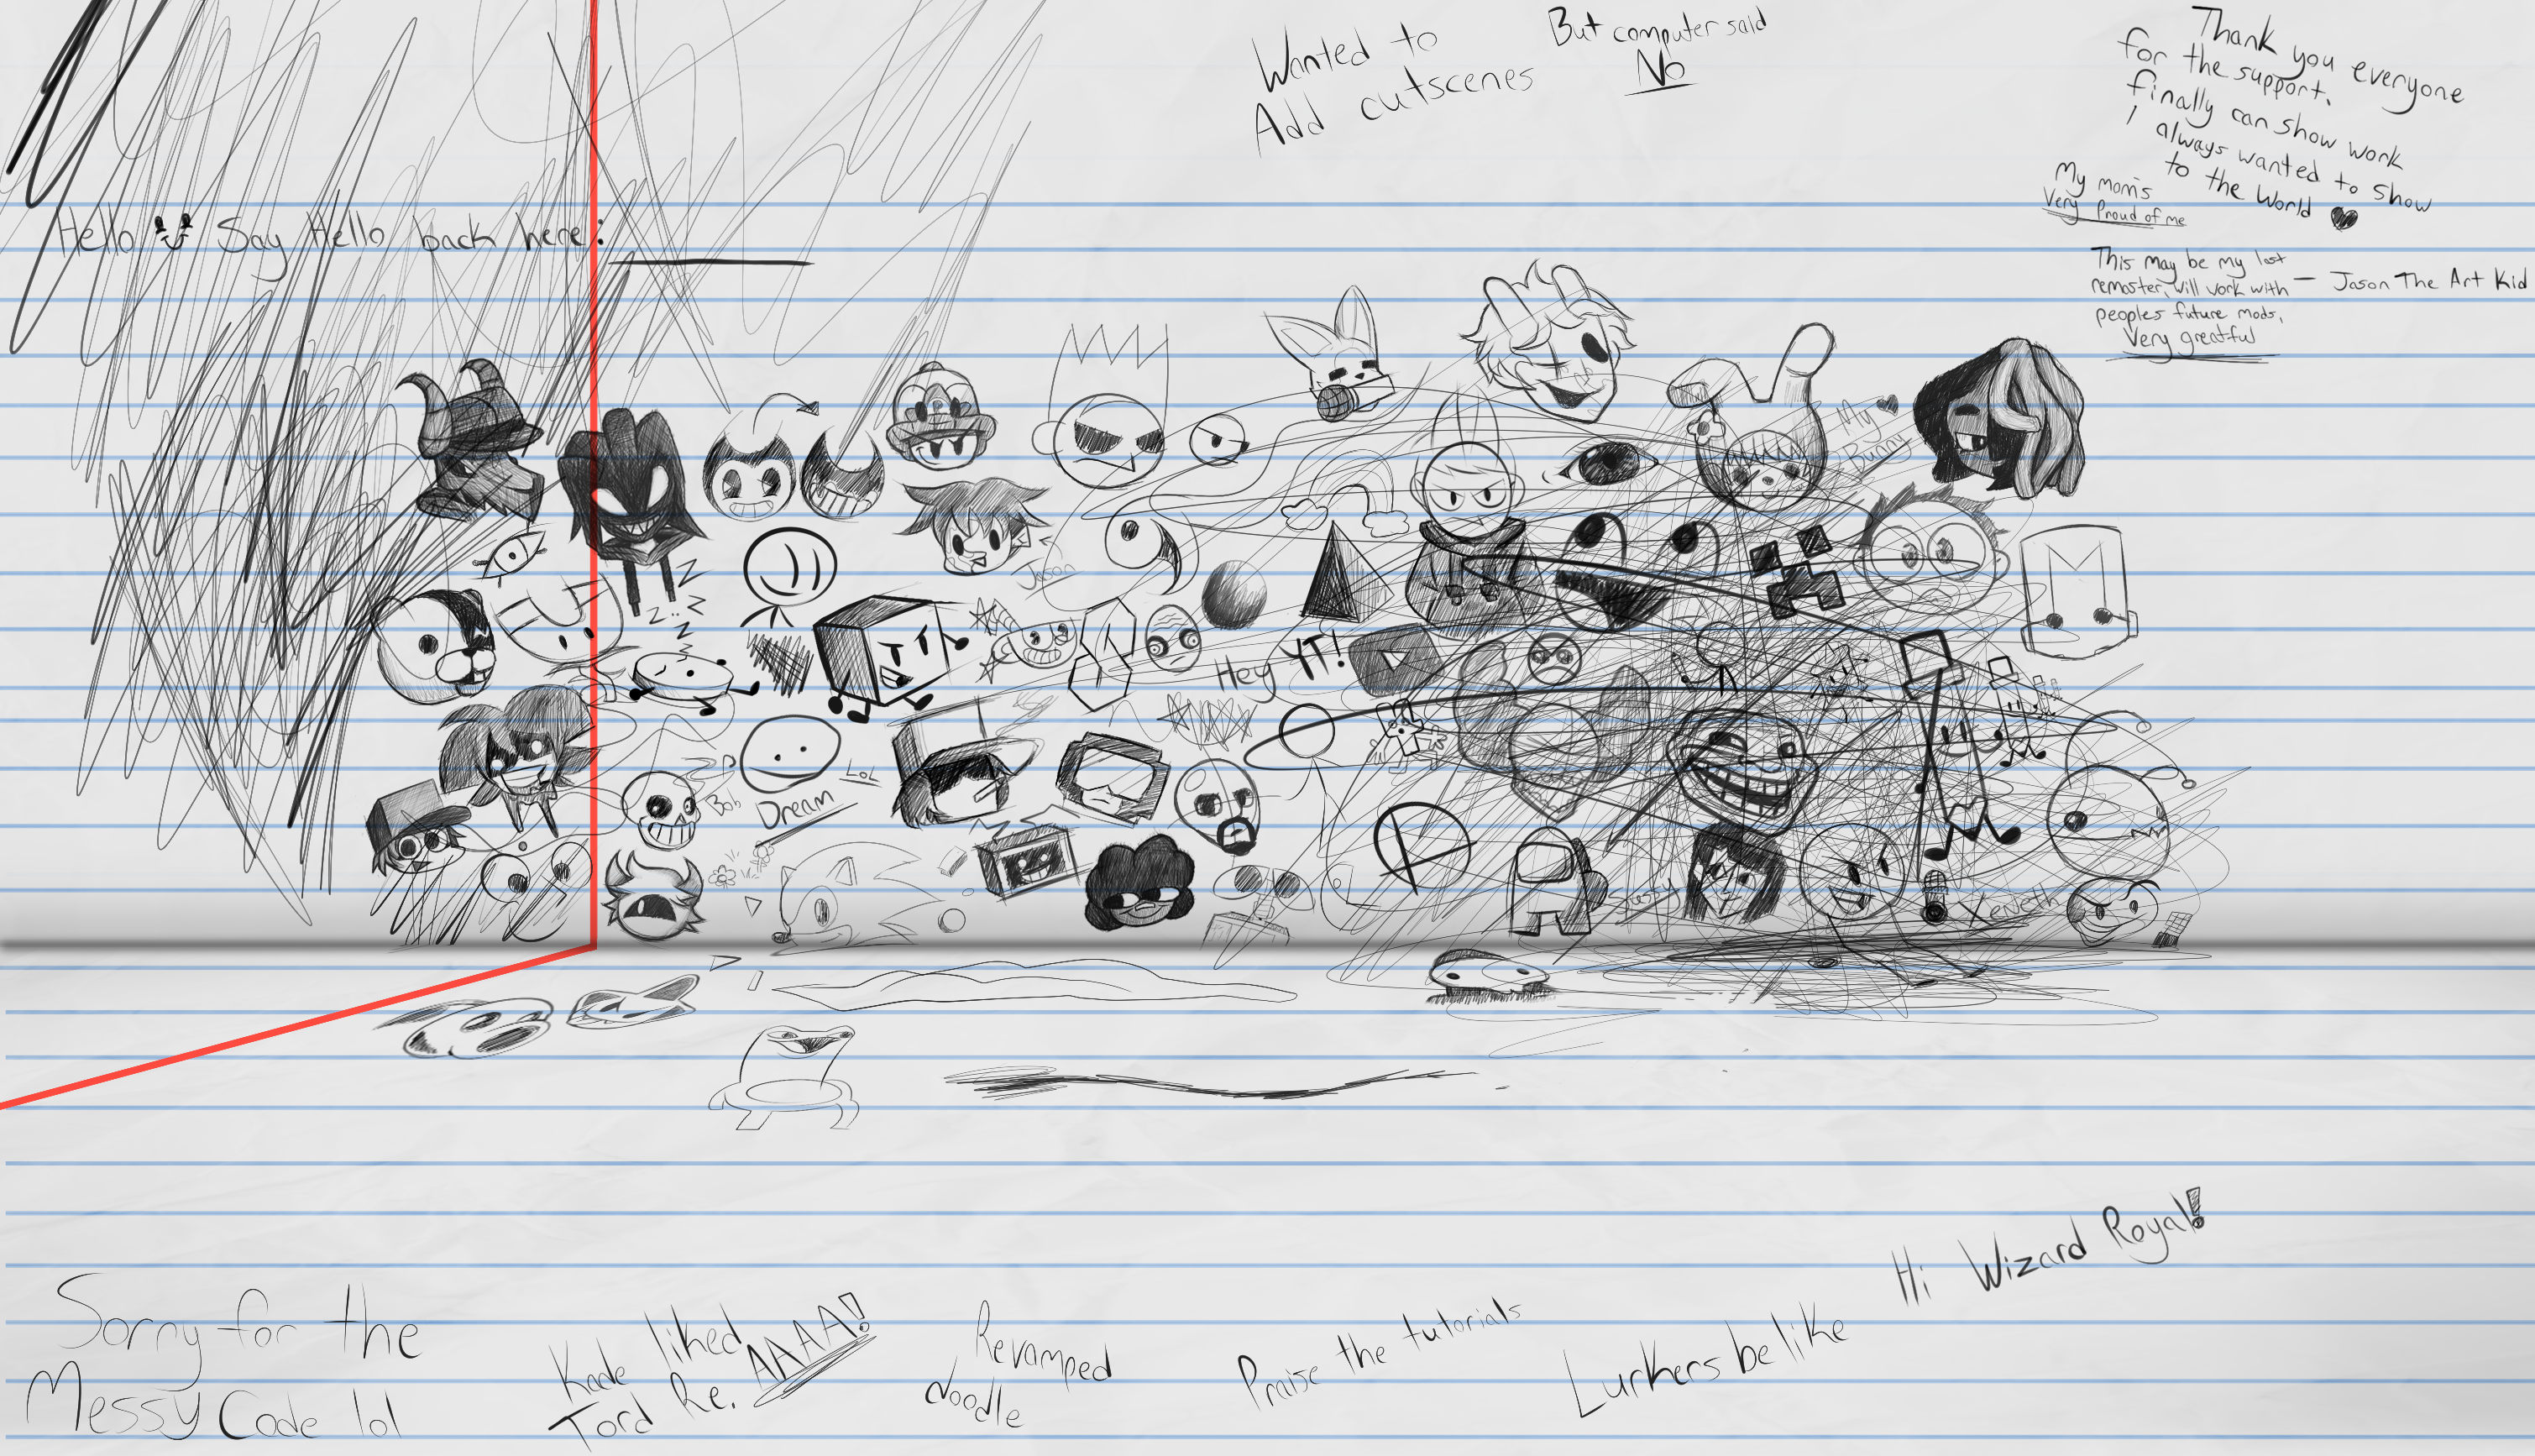 Wanted to
Add cutscenes
But computer said
No
Thank you everyone
for the support.
finally can show work
I always wanted to show
to the World
My mom's
Very Proud of me
This may be my last
remaster, will work with
peoples future mods,
Very greatful
— Jason The Art Kid
Hello Say Hello back here:
My
Bunny
Jason
Hey YT!
Bob
Dream
LoL
Xeneth
Sorry for the
Messy Code lol
Kade liked
Tord Re. AAAA!
Revamped
Noodle
Praise the tutorials
Lurkers be like
Hi Wizard Royal!